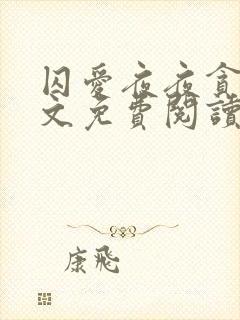 囚愛夜夜貪
文免費閱讀
康飛